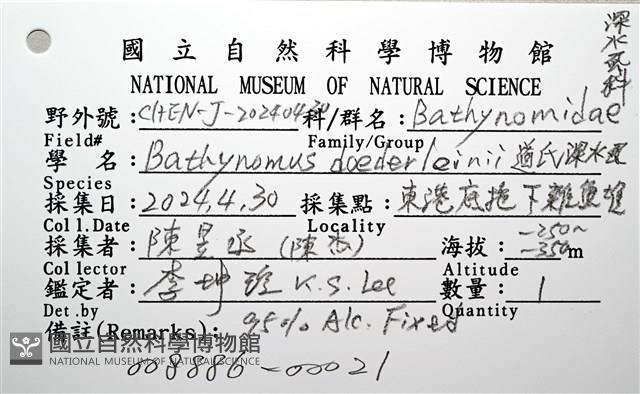 深水虱科
國立自然科學博物館
NATIONAL MUSEUM OF NATURAL SCIENCE
野外號：CHEN-J-20240430 科/群名：Bathynomidae
Field# Family/Group
學名：Bathynomus doederleinii 道氏深水虱
Species
採集日：2024.4.30 採集點：東港底拖下雜魚堆
Col l.Date Locality
採集者：陳昱丞(陳杰) 海拔：-250~-350m
Col lector Altitude
鑑定者：李坤瑄 K.S. Lee 數量：1
Det .by Quantity
備註(Remarks)：95% Alc. Fixed
國立自然科學博物館
NATIONAL MUSEUM OF NATURAL SCIENCE
008886-00021